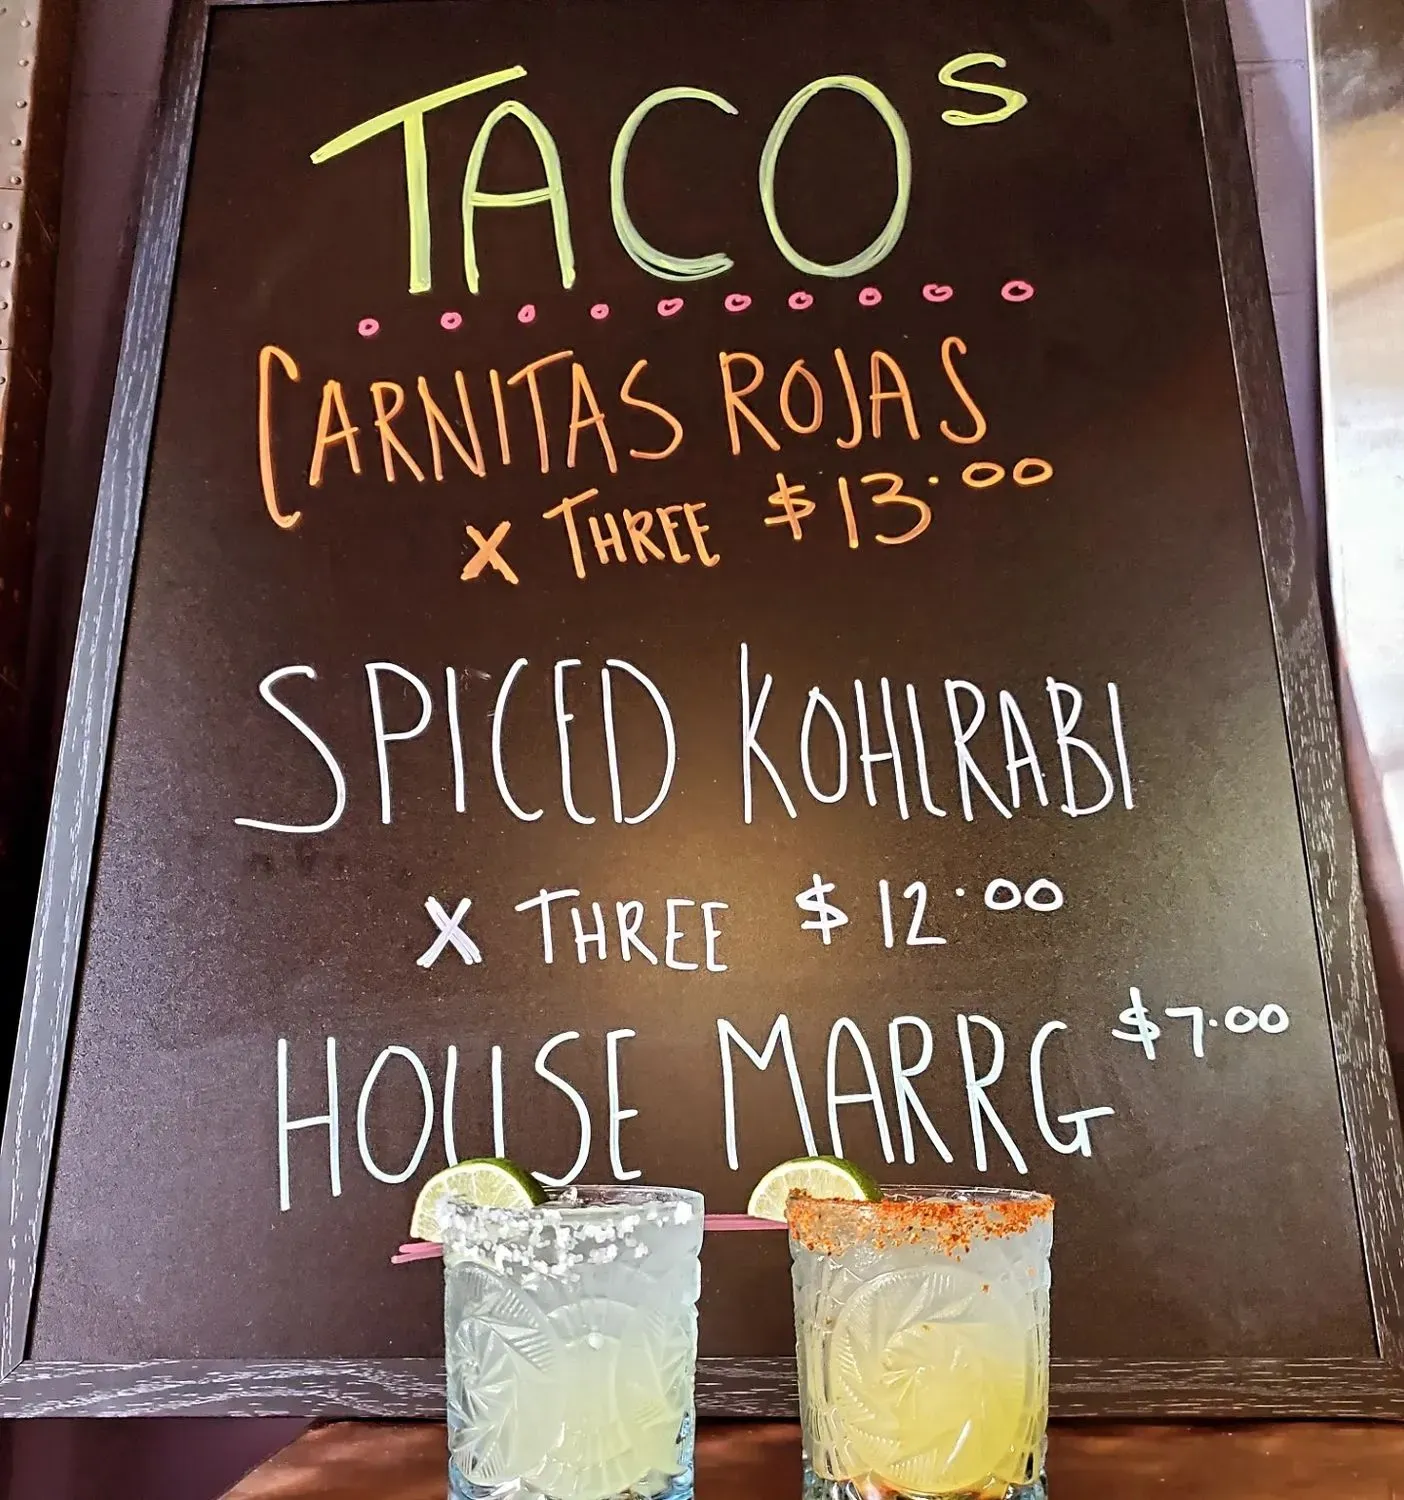 TACOS
CARNITAS ROJAS
X THREE $13.00
SPICED KOHLRABI
X THREE $12.00
HOUSE MARRG $7.00